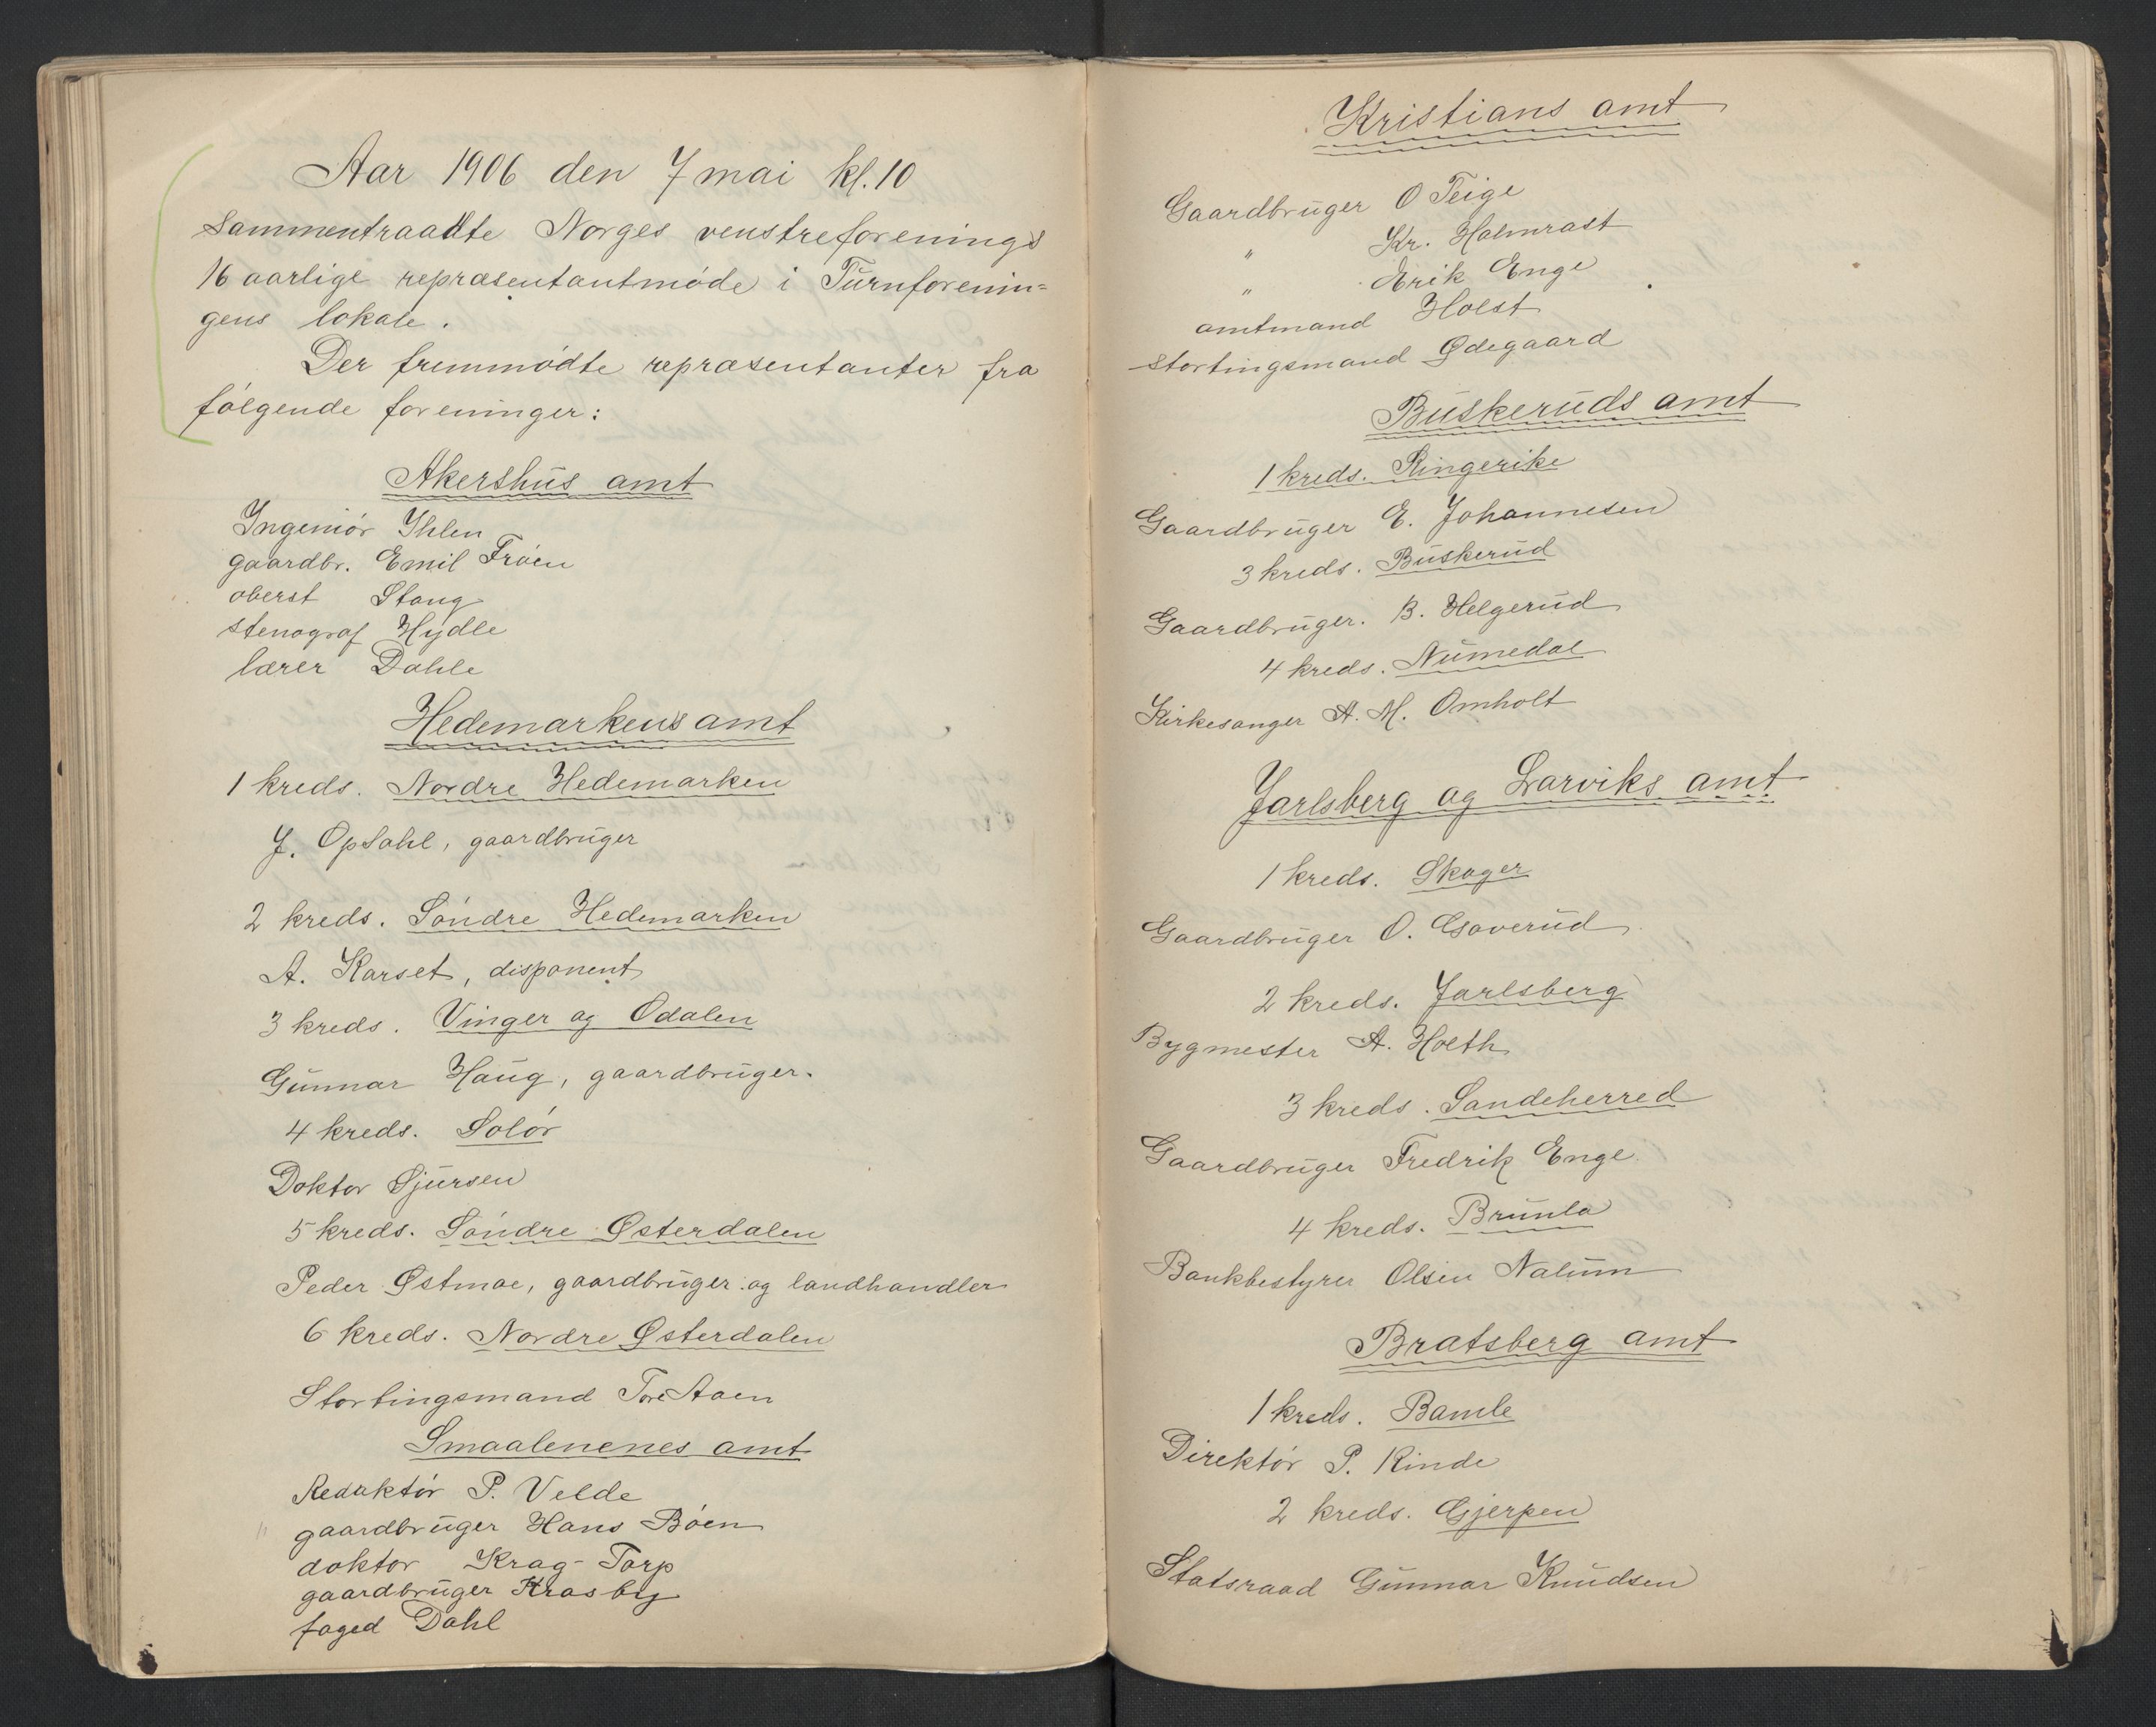 Aar 1906 den 7 mai kl. 10
Sammentraadte Norges venstreforenings
16 aarlige repræsentantmøde i Turnforenin=
gens lokale.
Der fremmødte repræsentanter fra
følgende foreninger:
Akershus amt
Ingeniør Ihlen
gaardbr. Emil Frøen
oberst Stang
stenograf Hydle
lærer Dahle
Hedemarkens amt
1 kreds. Nordre Hedemarken
J. Opsahl, gaardbruger
2 kreds. Søndre Hedemarken
A. Karset, disponent
3 kreds. Vinger og Odalen
Gunnar Haug, gaardbruger.
4 kreds. Solør
Doktor Sjursen
5 kreds. Søndre Østerdalen
Peder Østmoe, gaardbruger og landhandler
6 kreds. Nordre Østerdalen
Stortingsmand Tore Aaen
Smaalenenes amt
Redaktør P. Velde
gaardbruger Hans Bøen
doktor Krag-Torp
gaardbruger Krosby
foged Dahl
Kristians amt
Gaardbruger O Teige
" Kr. Holmrast
" Erik Enge
amtmand Holst
stortingsmand Ødegaard
Buskeruds amt
1 kreds. Ringerike
Gaardbruger E. Johannesen
3 kreds. Buskerud
Gaardbruger. B. Helgerud
4 kreds. Numedal
Kirkesanger A. M. Omholt
Jarlsberg og Larviks amt
1 kreds. Skoger
Gaardbruger O. Goverud
2 kreds. Jarlsberg
Bygmester A. Holth
3 kreds. Sandeherred
Gaardbruger Fredrik Enge
4 kreds. Brunla
Bankbestyrer Olsen Nalum
Bratsberg amt
1 kreds. Bamle
Direktør P. Rinde
2 kreds. Gjerpen
Statsraad Gunnar Knudsen